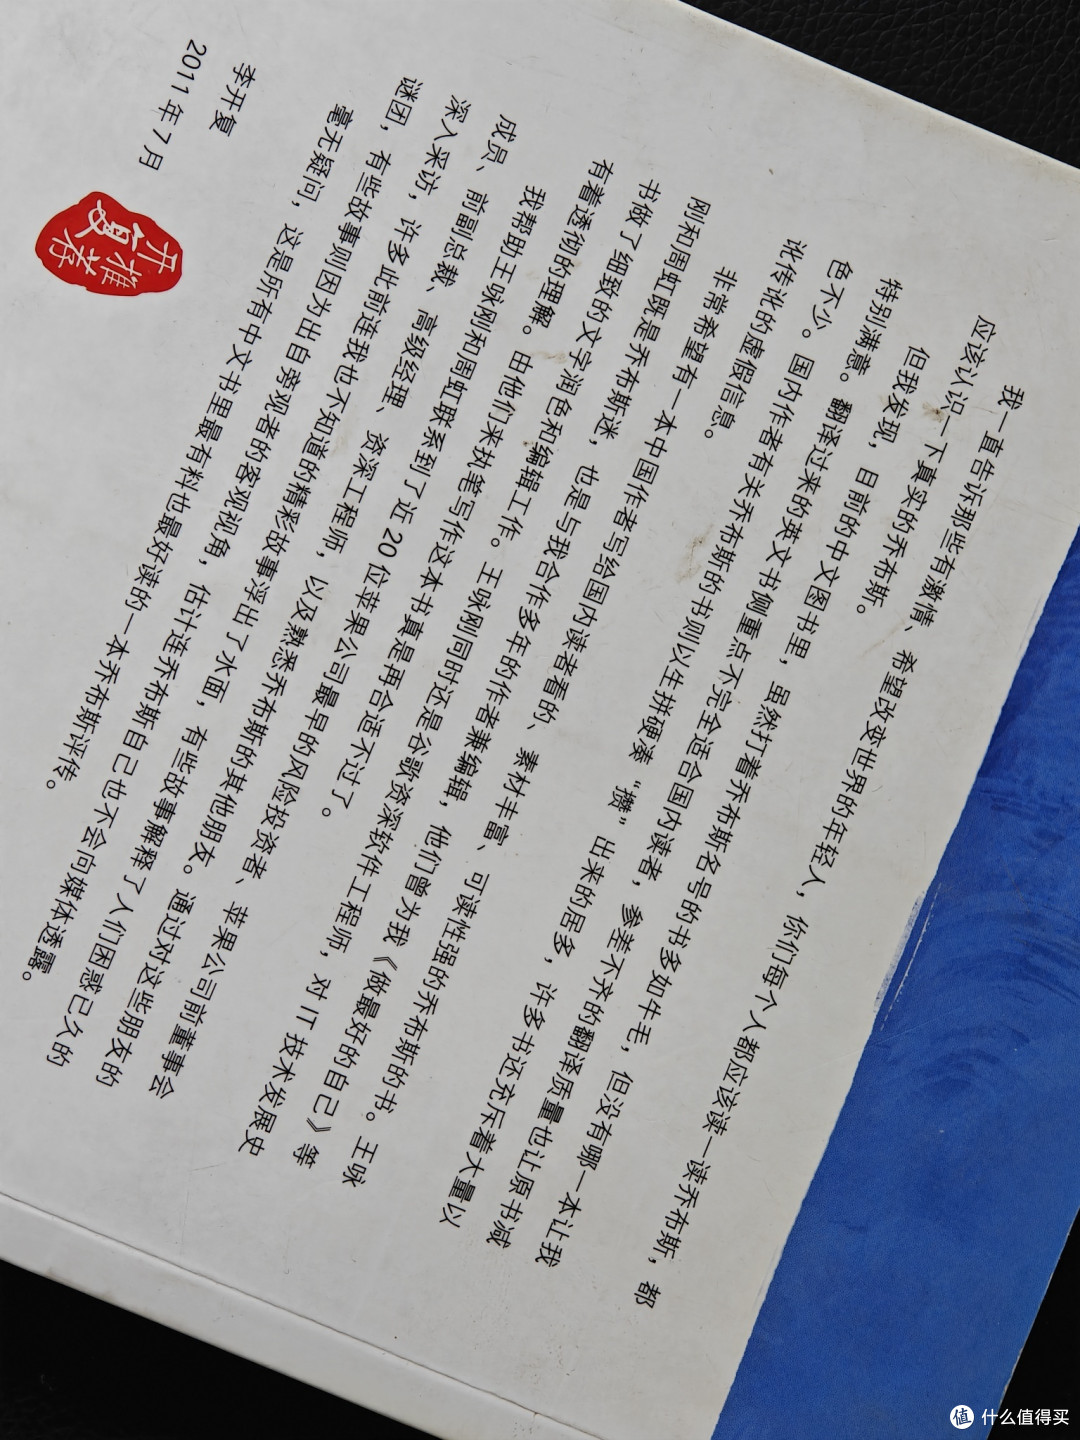 我一直告诉那些有激情、希望改变世界的年轻人，你们每个人都应该读一读乔布斯，都
应该认识一下真实的乔布斯。
但我发现，目前的中文图书里，虽然打着乔布斯名号的书多如牛毛，但没有哪一本让我
特别满意。翻译过来的英文书侧重点不完全适合国内读者，参差不齐的翻译质量也让原书减
色不少。国内作者有关乔布斯的书则以生拼硬凑“攒”出来的居多，许多书还充斥着大量以
讹传讹的虚假信息。
非常希望有一本中国作者写给国内读者看的、素材丰富、可读性强的乔布斯的书。王咏
刚和周虹既是乔布斯迷，也是与我合作多年的作者兼编辑，他们曾为我《做最好的自己》等
书做了细致的文字润色和编辑工作。王咏刚同时还是谷歌资深软件工程师，对IT技术发展史
有着透彻的理解。由他们来执笔写作这本书真是再合适不过了。
我帮助王咏刚和周虹联系到了近20位苹果公司最早的风险投资者、苹果公司前董事会
成员、前副总裁、高级经理、资深工程师，以及熟悉乔布斯的其他朋友。通过对这些朋友的
深入采访，许多此前连我也不知道的精彩故事浮出了水面，有些故事解释了人们困惑已久的
谜团，有些故事则因为出自旁观者的客观视角，估计连乔布斯自己也不会向媒体透露。
毫无疑问，这是所有中文书里最有料也最好读的一本乔布斯评传。
李开复
2011年7月
开复
推荐
值 什么值得买